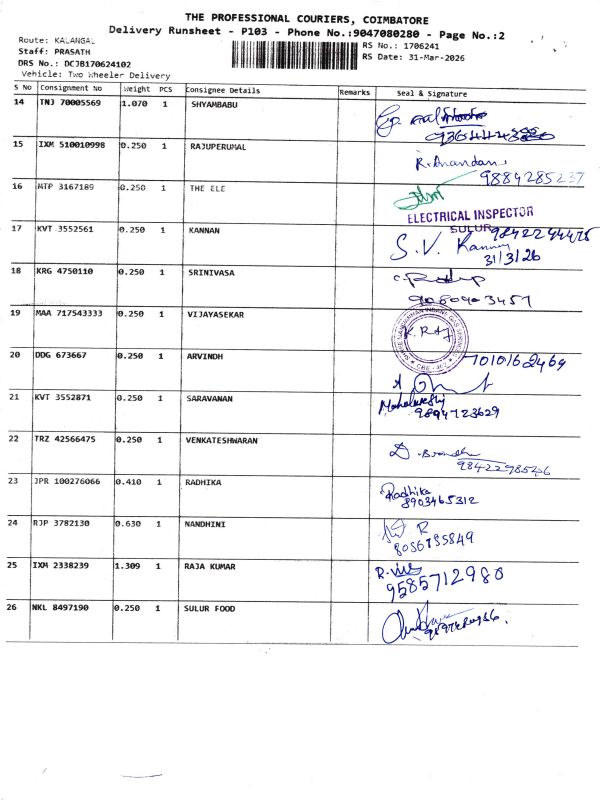 THE PROFESSIONAL COURIERS, COIMBATORE
Delivery Runsheet - P103 - Phone No.:9047080280 - Page No.:2
Route: KALANGAL
Staff: PRASATH
DRS No.: DCJB170624102
Vehicle: Two Wheeler Delivery
RS No.: 1706241
RS Date: 31-Mar-2026
S No Consignment No Weight PCS Consignee Details Remarks Seal & Signature
14 TNJ 70005569 1.070 1 SHYAMBABU
15 IXM 510010998 0.250 1 RAJUPERUMAL
R. Anandan
9884285237
16 MTP 3167189 0.250 1 THE ELE
ELECTRICAL INSPECTOR
SULUR
17 KVT 3552561 0.250 1 KANNAN
S.V. Kannan
31/3/26
18 KRG 4750110 0.250 1 SRINIVASA
9080903457
19 MAA 717543333 0.250 1 VIJAYASEKAR
K. Raj
20 DDG 673667 0.250 1 ARVINDH
7010162469
21 KVT 3552871 0.250 1 SARAVANAN
9894723629
22 TRZ 42566475 0.250 1 VENKATESHWARAN
23 JPR 100276066 0.410 1 RADHIKA
Radhika
8903465312
24 RJP 3782130 0.630 1 NANDHINI
25 IXM 2338239 1.309 1 RAJA KUMAR
9585712980
26 NKL 8497190 0.250 1 SULUR FOOD